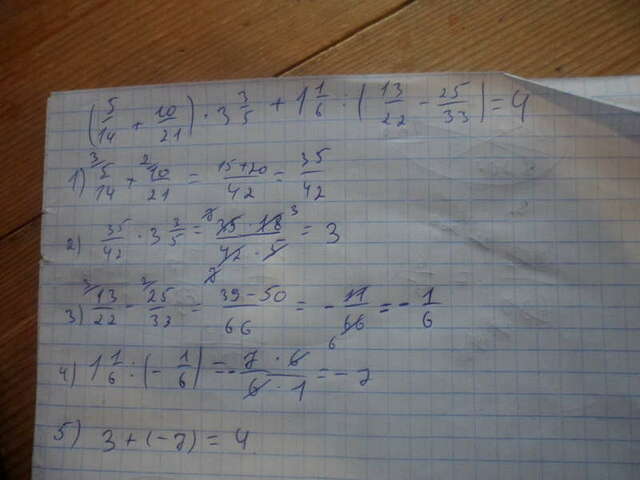 (5/14 + 10/21) · 3 3/5 + 1 1/6 : (13/22 - 25/33) = 4
1) ³⁄5/14 + ²⁄10/21 = 15+20/42 = 35/42
2) 35/42 · 3 3/5 = 35 · 18 3/42 · 5 = 3
3) ³⁄13/22 - ²⁄25/33 = 39-50/66 = - 11/66 6 = - 1/6
4) 1 1/6 : (- 1/6) = - 7 · 6/6 · 1 = - 7
5) 3 + (-7) = 4